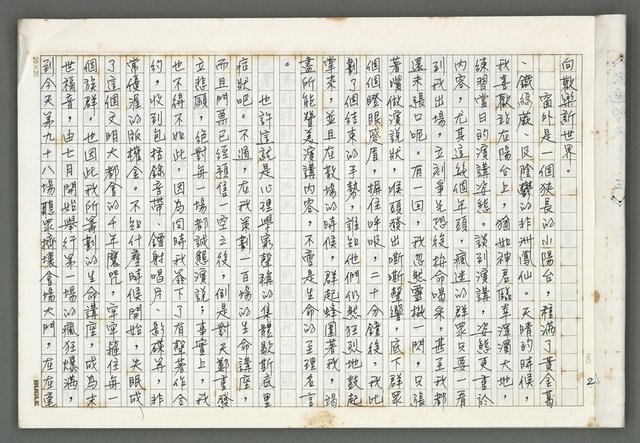 向歡樂新世界。
窗外是一個狹長的小陽台，種滿了黃金葛
、鐵線蕨、及陰鬱的非洲鳳仙。天晴的時候，
我喜歡站在陽台上，猶如神君臨幸濱濱大地，
練習當日的演講姿態。談到演講，姿態更重於
內容，尤其這幾個年頭，瘋迷的群眾只要一看
到我出場，立刻爭先恐後拚命喝采，甚至我都
還未張口呢。有一回，我忽然靈機一閃，只張
著嘴做演說狀，喉頭發出嘶嘶聲響，底下群眾
個個瞪眼蹙眉，摒住呼吸，二十分鐘後，我比
劃了個結束的手勢，誰知他們仍然狂烈地鼓起
掌來，並且在散場的時候，群起蜂圍著我，竭
盡所能贊美演講內容，不啻是生命的至理名言
。
也許這就是心理學家聲稱的集體歇斯底里
症狀吧。不過，在我策劃一百場生命講座，
而且門票已經預售一空之後，倒是對天鄭重發
立悲願，絕對每一場都誠懇演說；事實上，我
也不得不如此，因為同時我簽下了有聲著作合
約，收到包括錄音帶、鐳射唱片、影碟等，非
常優渥的版權金。不知什麼時候開始，失眠成
了這個文明大都會的千年魔咒，牢牢箍住每一
個族群。也因此我所籌劃的生命講座，成為末
世福音，由七月開始舉行第一場的瘋狂爆滿，
到今天第九十八場聽眾擠壞會場大門，在在重
2
25×20